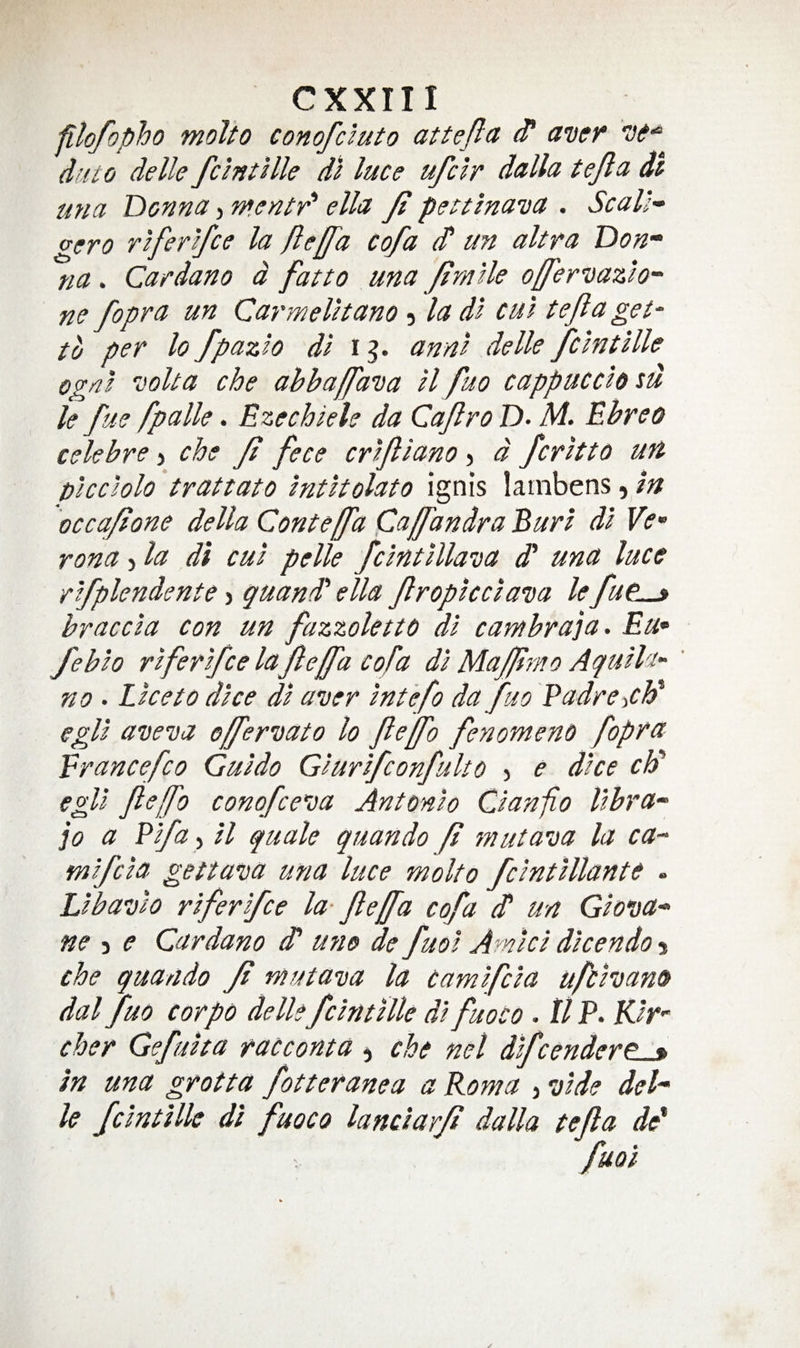 CXXIII
filoſopho molto conoſciuto atteſta d' aver ve-
duto delle ſcintille di luce uſcir dalla teſta di
una Donna, mentr' ella ſi pettinava . Scali-
gero riferiſce la ſteſſa coſa d' un altra Don-
na . Cardano à fatto una ſimile oſſervazio-
ne ſopra un Carmelitano, la di cui teſta get-
tò per lo ſpazio di 13. anni delle ſcintille
ogni volta che abbaſſava il ſuo cappuccio sù
le ſue ſpalle . Ezechiele da Caſtro D. M. Ebreo
celebre, che ſi fece criſtiano, à ſcritto un
picciolo trattato intitolato ignis lambens, in
occaſione della Conteſſa Caſſandra Buri di Ve-
rona, la di cui pelle ſcintillava d' una luce
riſplendente, quand' ella ſtropicciava le ſue
braccia con un fazzoletto di cambraja. Eu-
ſebio riferiſce la ſteſſa coſa di Maſſimo Aquila-
no . Liceto dice di aver inteſo da ſuo Padre, ch'
egli aveva oſſervato lo ſteſſo fenomeno ſopra
Franceſco Guido Giuriſconſulto, e dice ch'
egli ſteſſo conoſceva Antonio Cianfio libra-
jo a Piſa, il quale quando ſi mutava la ca-
miſcia gettava una luce molto ſcintillante .
Libavio riferiſce la ſteſſa coſa d' un Giova-
ne, e Cardano d' uno de ſuoi Amici dicendo,
che quando ſi mutava la camiſcia uſcivano
dal ſuo corpo delle ſcintille di fuoco . Il P. Kir-
cher Geſuita racconta, che nel diſcendere
in una grotta ſotteranea a Roma, vide del-
le ſcintille di fuoco lanciarſi dalla teſta de'
ſuoi